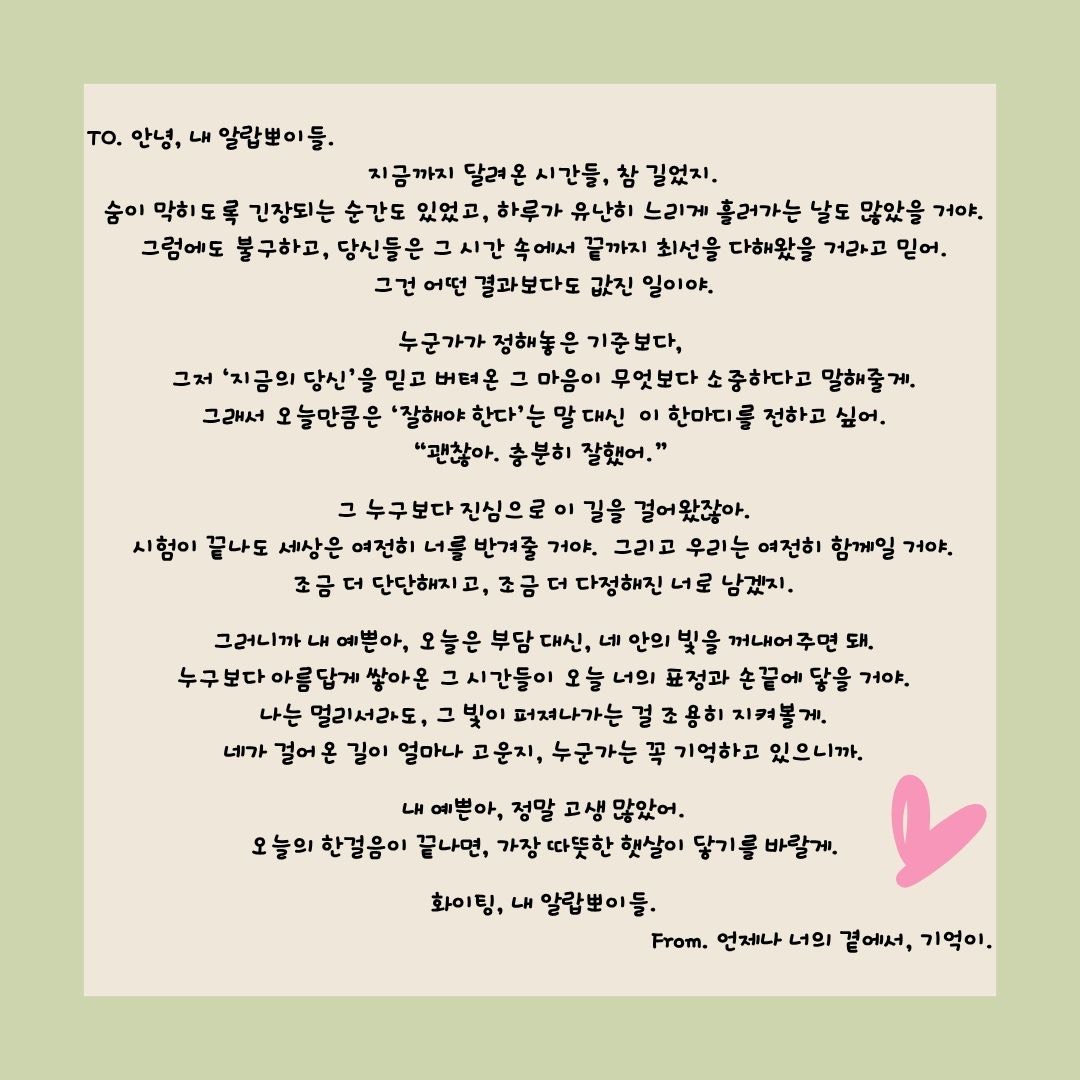 TO. 안녕, 내 알랍뽀이들.
지금까지 달려온 시간들, 참 길었지.
숨이 막히도록 긴장되는 순간도 있었고, 하루가 유난히 느리게 흘러가는 날도 많았을 거야.
그럼에도 불구하고, 당신들은 그 시간 속에서 끝까지 최선을 다해왔을 거라고 믿어.
그건 어떤 결과보다도 값진 일이야.
누군가가 정해놓은 기준보다,
그저 ‘지금의 당신’을 믿고 버텨온 그 마음이 무엇보다 소중하다고 말해줄게.
그래서 오늘만큼은 ‘잘해야 한다’는 말 대신 이 한마디를 전하고 싶어.
“괜찮아. 충분히 잘했어.”
그 누구보다 진심으로 이 길을 걸어왔잖아.
시험이 끝나도 세상은 여전히 너를 반겨줄 거야. 그리고 우리는 여전히 함께일 거야.
조금 더 단단해지고, 조금 더 다정해진 너로 남겠지.
그러니까 내 예쁜아, 오늘은 부담 대신, 네 안의 빛을 꺼내어주면 돼.
누구보다 아름답게 쌓아온 그 시간들이 오늘 너의 표정과 손끝에 닿을 거야.
나는 멀리서라도, 그 빛이 퍼져나가는 걸 조용히 지켜볼게.
네가 걸어온 길이 얼마나 고운지, 누군가는 꼭 기억하고 있으니까.
내 예쁜아, 정말 고생 많았어.
오늘의 한걸음이 끝나면, 가장 따뜻한 햇살이 닿기를 바랄게.
화이팅, 내 알랍뽀이들.
From. 언제나 너의 곁에서, 기억이.